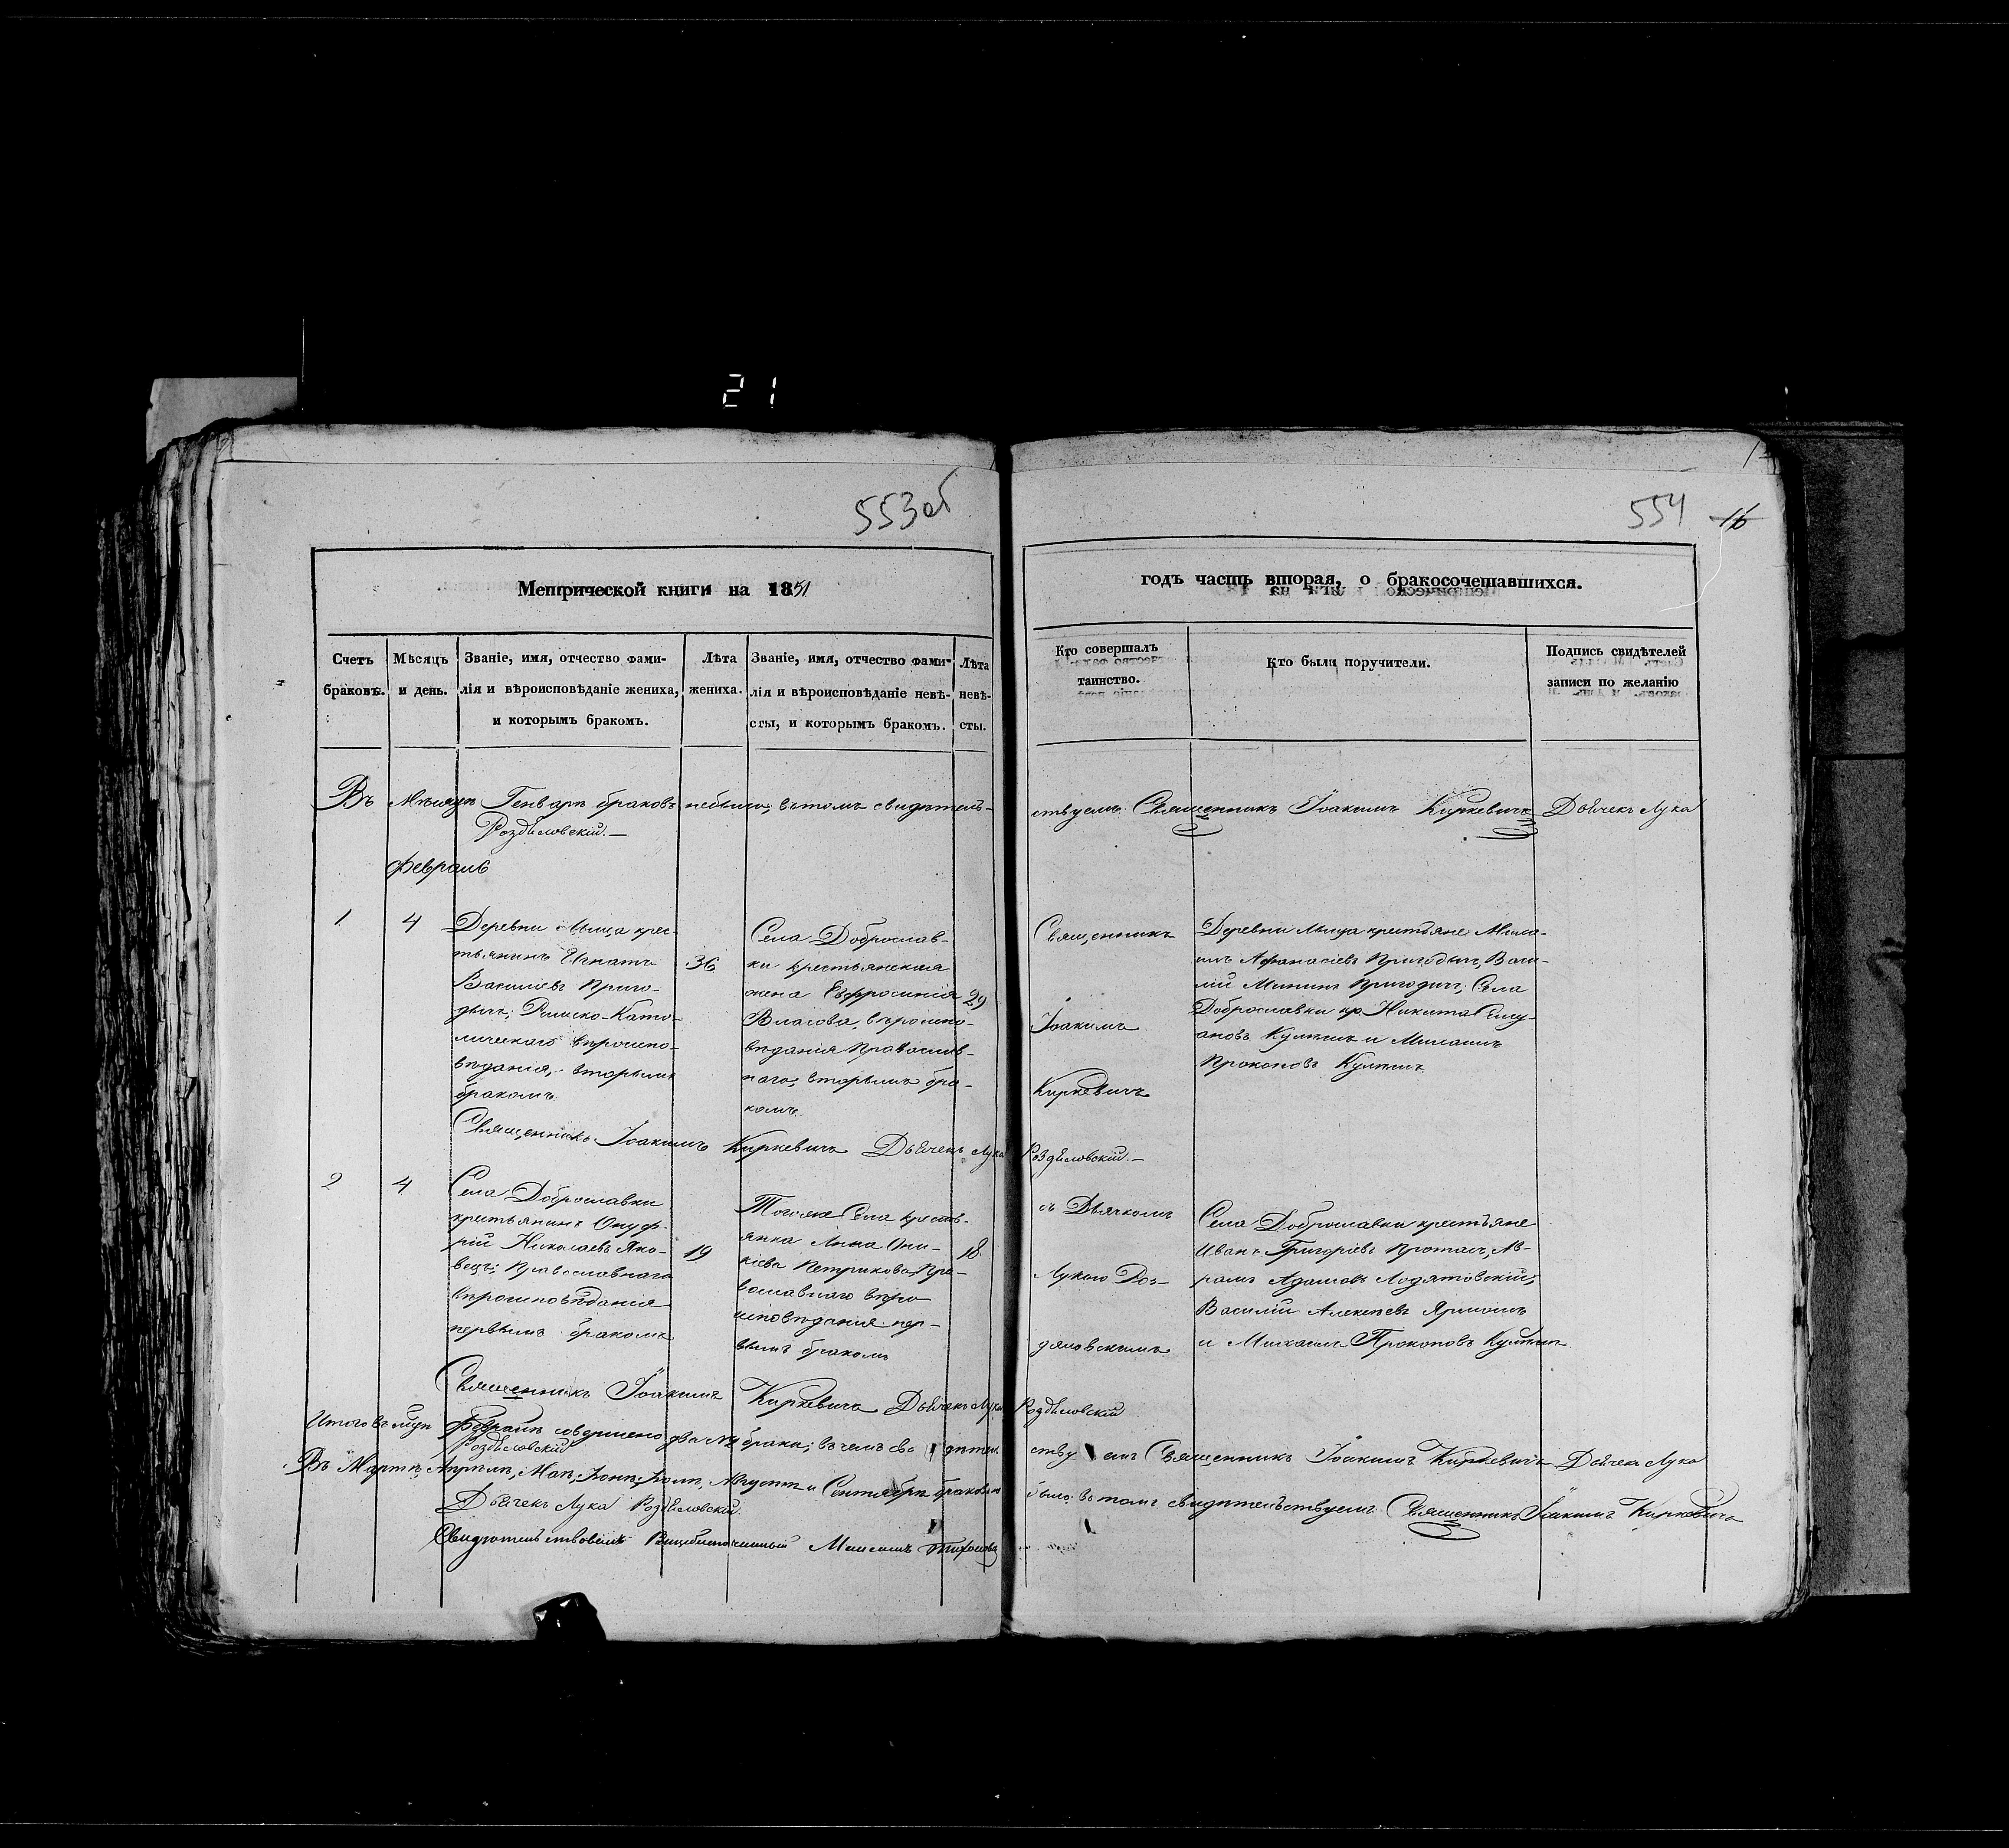 21
553об
554 16
Метрической книги на 1851
годъ часть вторая, о бракосочетавшихся.
Счетъ браковъ.
Мѣсяцъ и день.
Званіе, имя, отчество фами-
лія и вѣроисповѣданіе жениха,
и которымъ бракомъ.
Лѣта
жениха.
Званіе, имя, отчество фами-
лія и вѣроисповѣданіе невѣ-
сты, и которымъ бракомъ.
Лѣта
невѣ-
сты.
Кто совершалъ
таинство.
Кто были поручители.
Подпись свидѣтелей
записи по желанію
Въ Генварѣ браковъ небыло, вътомъ свидѣтель-
ствуемъ Священникъ Іоакимъ Киркевичъ Дьячекъ Лука
Роздяловскій.—
Февраль
1
4
Деревни Мыца крес-
тьянинъ Игнатъ
Василіевъ Приго-
дичъ, Римско-Като-
лическаго вѣроиспо-
вѣданія, вторымъ
бракомъ.
36
Села Доброслав-
ки крестьянская
жена Евфросинія
Власова, вѣроиспо-
вѣданія Православ-
наго, вторымъ бра-
комъ.
29
Священникъ
Іоакимъ
Киркевичъ
Деревни Мыца крестьяне
Афанасіевъ Пригодичъ, Васи-
лій Мининъ Пригодичъ; Села
Доброславки кр. Никита
и
Прокоповъ
Священникъ Іоакимъ Киркевичъ Дьячекъ Лука Роздяловскій.—
2
4
Села Доброславки
крестьянинъ Онуф-
рій Николаевъ Яко-
вецъ; Православнаго
Вѣроисповѣданія
первымъ бракомъ
19
Тогоже Села кресть-
янка Анна Они-
кіева Петрикова, Пра-
вославнаго вѣро
исповѣданія пер-
вымъ бракомъ
18
съ Дьячкомъ
Лукою Роз-
дяловскимъ
Села Доброславки крестьяне
Иванъ Григоріевъ Протасъ, Ав-
рамъ Адамовъ
Василій Алексѣевъ
и Михаилъ Прокоповъ
Священникъ Іоакимъ Киркевичъ Дьячекъ Лука Роздяловскій
Итого въ Февралѣ совершено два № 2 брака; въ чемъ
Священникъ Іоакимъ Киркевичъ Дьячекъ Лука
Роздяловскій
Въ Мартѣ, Апрѣлѣ, Маѣ, Іюнѣ, Іюлѣ, Августѣ и Сентябрѣ браковъ не
было: въ томъ свидѣтельствуемъ Священникъ Іоакимъ Киркевичъ
Дьячекъ Лука Роздяловскій
Свидѣтельствовалъ